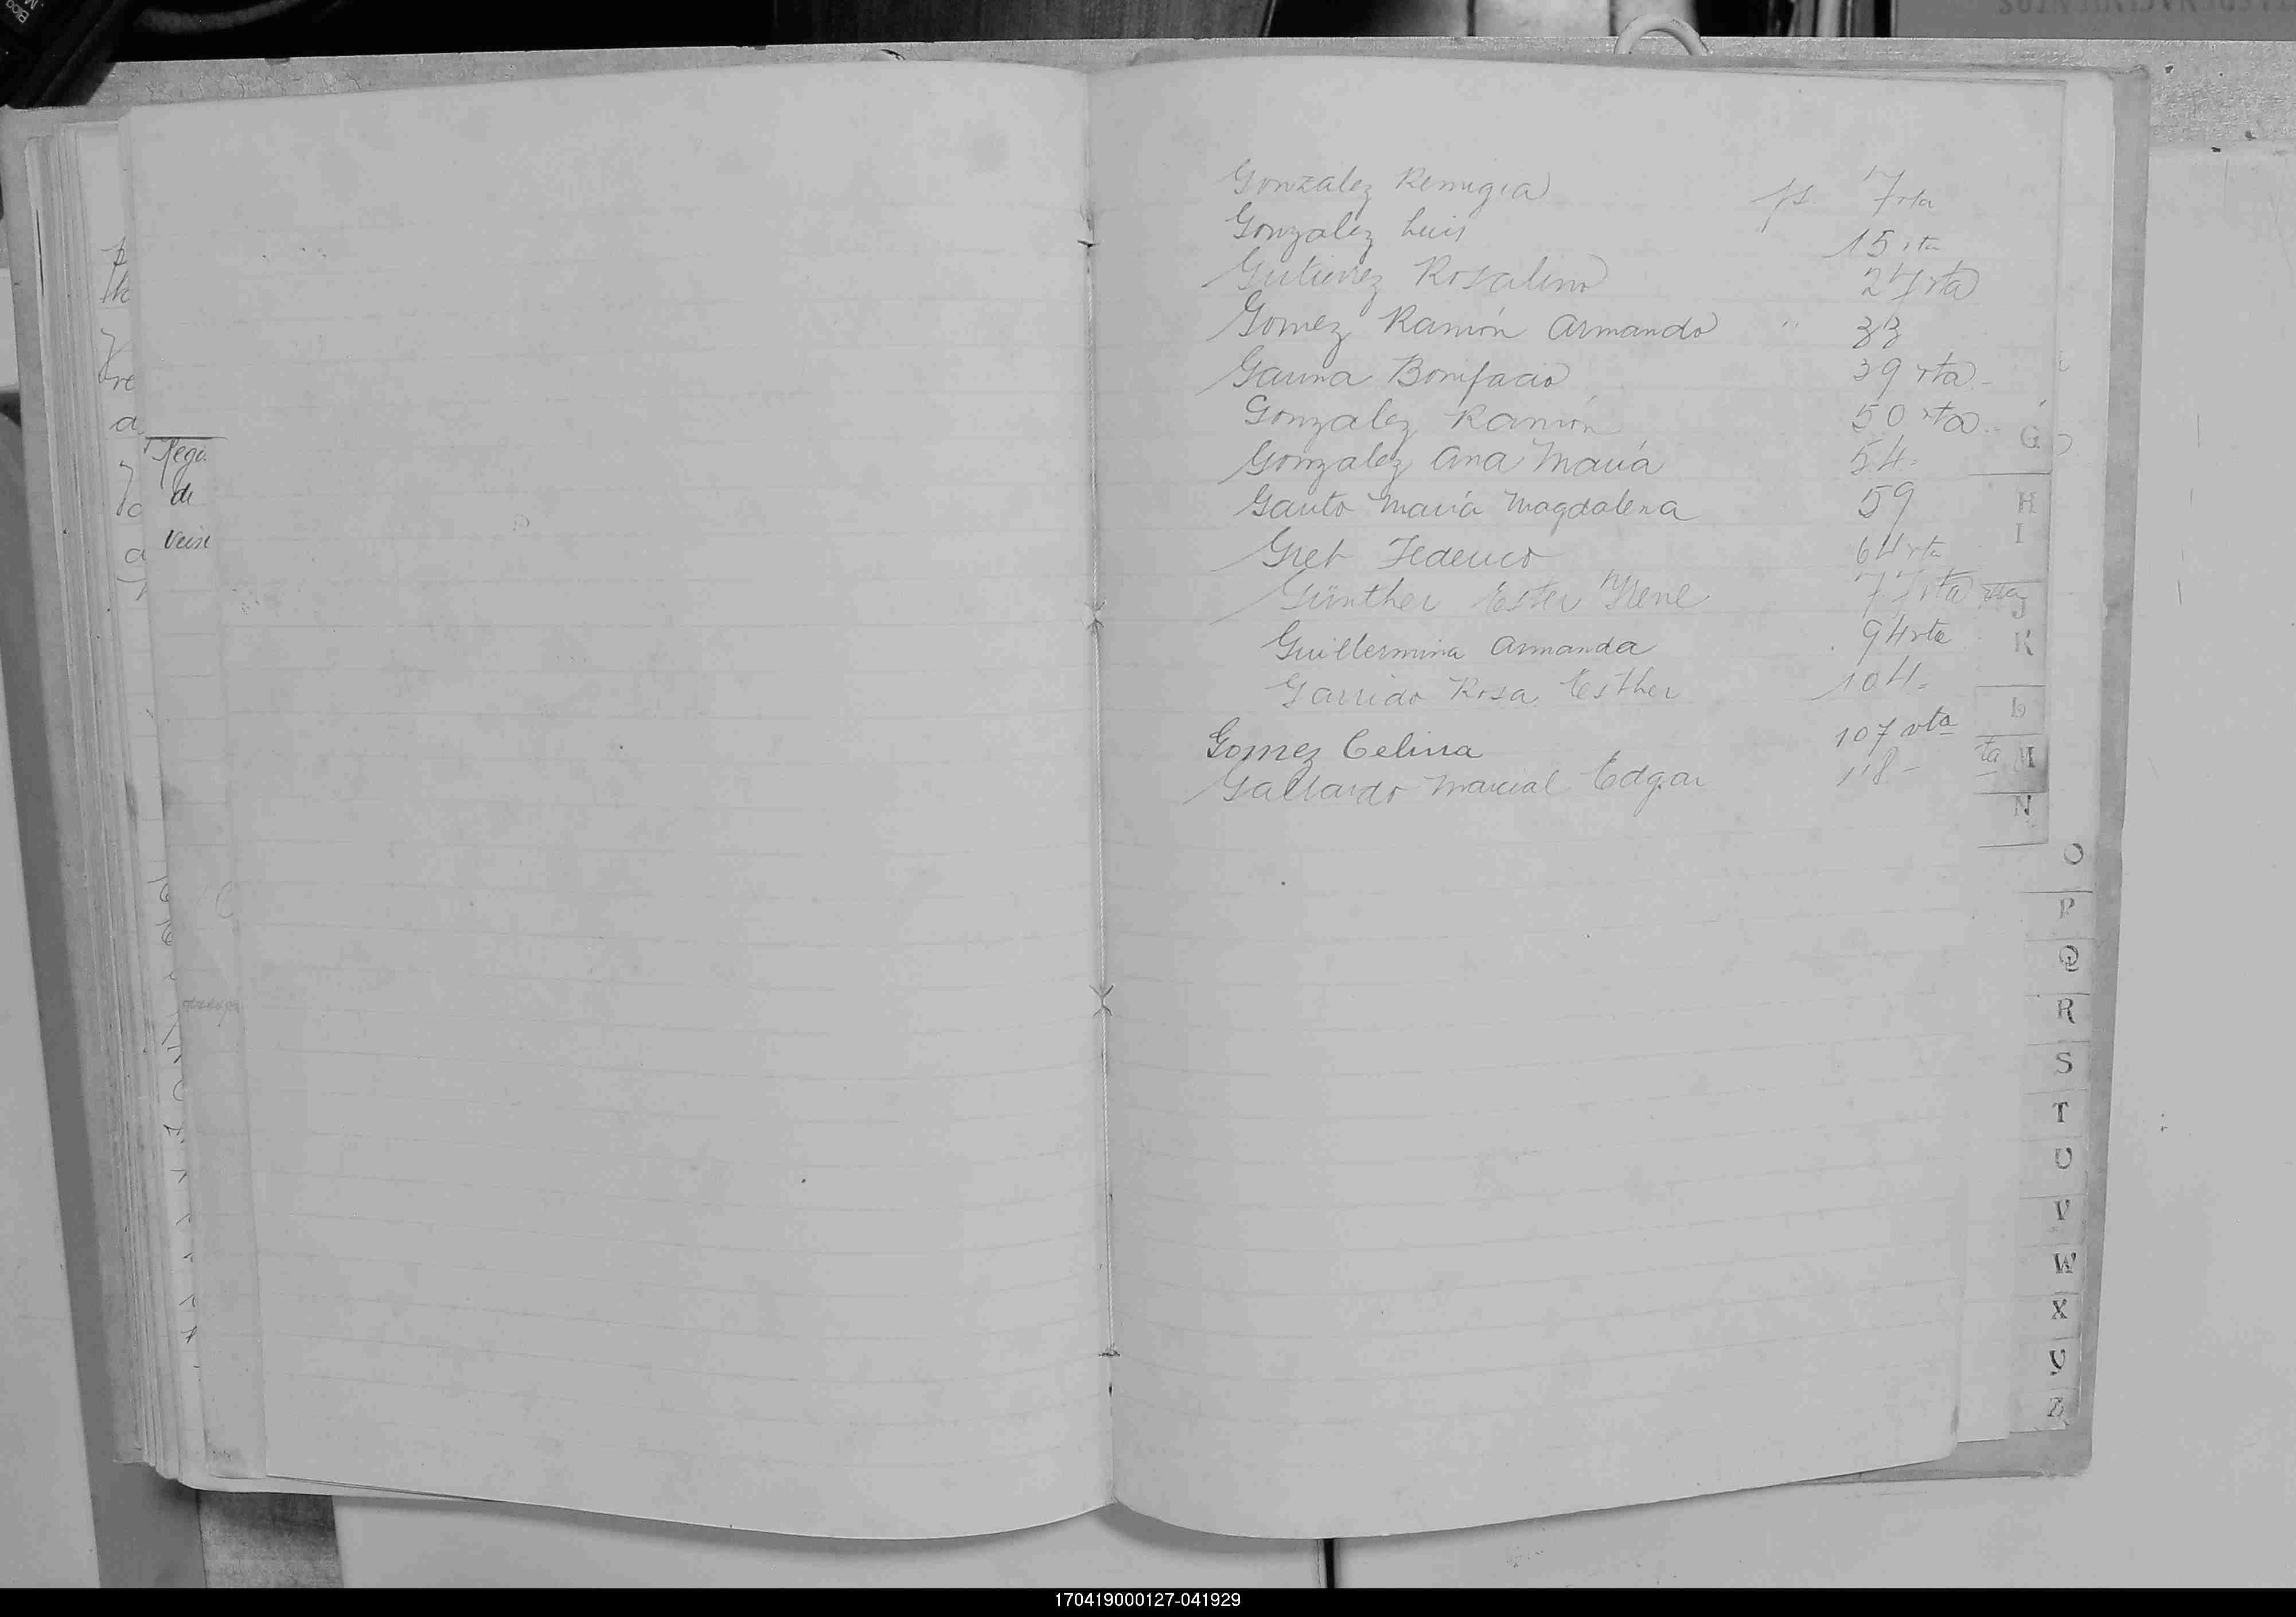 Regi
de
Gonzalez Remigia fs. 7 vta
Gonzalez Luis 15 vta
Gutierrez Rosalino 27 vta
Gomez Ramón Armando " 33
Gauna Bonifacio 39 vta.-
Gonzalez Ramón 50 vta.-
Gonzalez Ana María 54-
Gauto María Magdalena 59
Federico 64 vta
Günther Ester Yrene 77 vta
Guillermina Armanda 94 vta
Garrido Rosa Esther 104-
Gomez Celina 107 vta
Gallardo Marcial Edgar
G
H
I
J
K
L
M
N
O
P
Q
R
S
T
U
V
W
X
Y
Z
170419000127-041929